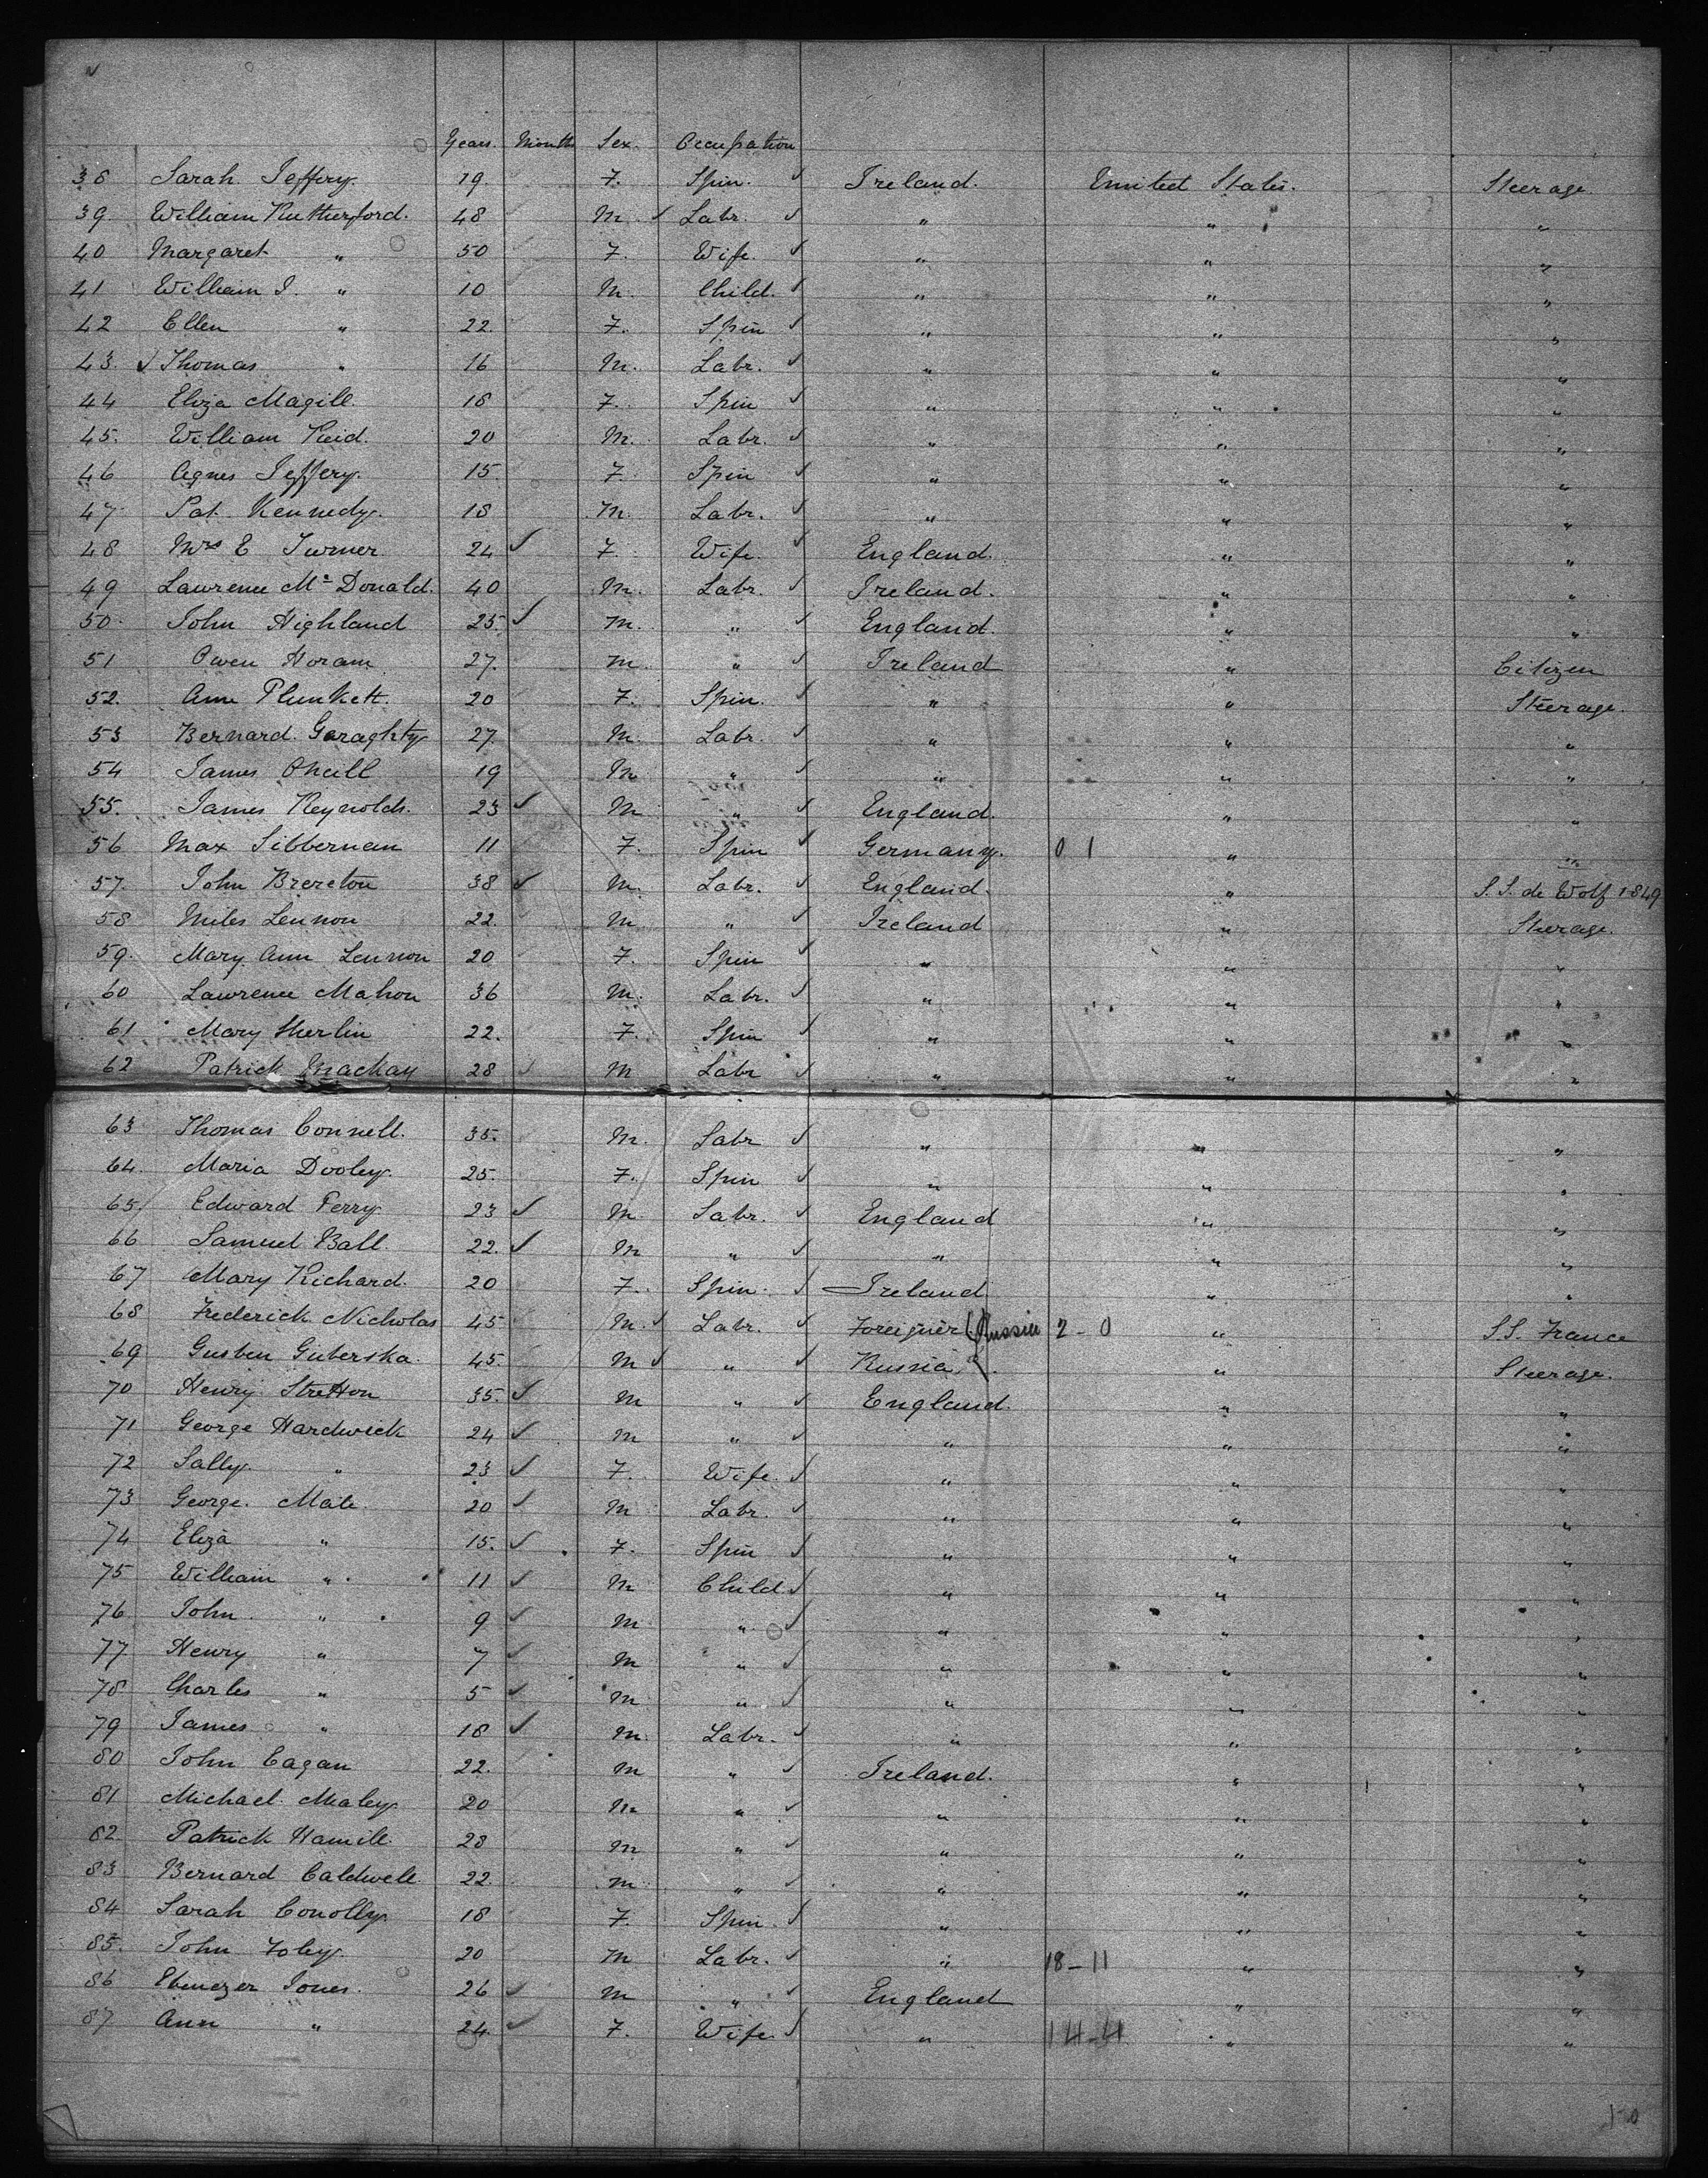 Years. Months Sex. Occupation
38 Sarah Jeffery. 19. F. Spin. Ireland. United States. Steerage
39 William Rutherford. 48 M. Labr. " " "
40 Margaret " 50 F. Wife. " " "
41 William J. " 10 M. Child. " " "
42 Ellen " 22. F. Spin " " "
43. Thomas " 16 M. Labr. " " "
44 Eliza Magill. 18 F. Spin " " "
45. William Reid. 20 M. Labr. " " "
46 Agnes Jeffery. 15. F. Spin " " "
47 Pat. Kennedy. 18 M. Labr. " " "
48 Mrs E Turner 24 F. Wife. England. " "
49 Lawrence Mc Donald. 40 M. Labr. Ireland. " "
50. John Highland 25. M. " England. " "
51 Owen Horam 27. M. " Ireland " Citizen
52. Ann Plunkett. 20 F. Spin. " " Steerage.
53 Bernard. Garaghty 27. M. Labr. " " "
54 James Oneill 19 M. " " " "
55. James Reynolds. 23 M " England. " "
56 Max Sibbernan 11 F. Spin Germany. 0 1 " "
57. John Brereton 38 M. Labr. England. " S.S. de Wolf 1849
58 Miles Lennon 22. M " Ireland " Steerage.
59. Mary Ann Lennon 20 F. Spin " " "
60 Lawrence Mahon 36 M. Labr. " " "
61 Mary Sherlin 22. F. Spin " " "
62 Patrick Mackay 28 M Labr " " "
63 Thomas Connell. 35. M. Labr " " "
64. Maria Dooley. 25. F. Spin " " "
65. Edward Perry 23 M Labr. England " "
66 Samuel Ball. 22. M " " " "
67 Mary Richard. 20 F. Spin. Ireland " "
68 Frederick Nicholas 45 M. Labr. Foreigner (Russia 2-0 " S.S. France
69 Gusben Guberska. 45. M " Russia " Steerage.
70 Henry Stretton 35. M " England. " "
71 George Hardwick 24 M " " " "
72 Sally. " 23 F. Wife. " " "
73 George. Male. 20 M Labr. " " "
74 Eliza " 15. F. Spin " " "
75 William " 11 M Child " " "
76 John. " 9 M " " " "
77. Henry " 7 M " " " "
78 Charles " 5 M " " " "
79 James " 18 M. Labr. " " "
80 John Eagan 22. M " Ireland. " "
81 Michael. Maley. 20 M " " " "
82 Patrick Hamill. 28 M " " " "
83 Bernard Caldwell. 22. M " " " "
84 Sarah Conolly. 18 F. Spin. " " "
85. John Foley. 20 M Labr. " 18-11 " "
86 Ebenezer Jones. 26 M " England " "
87 Ann " 24. F. Wife. " 14-4 " "